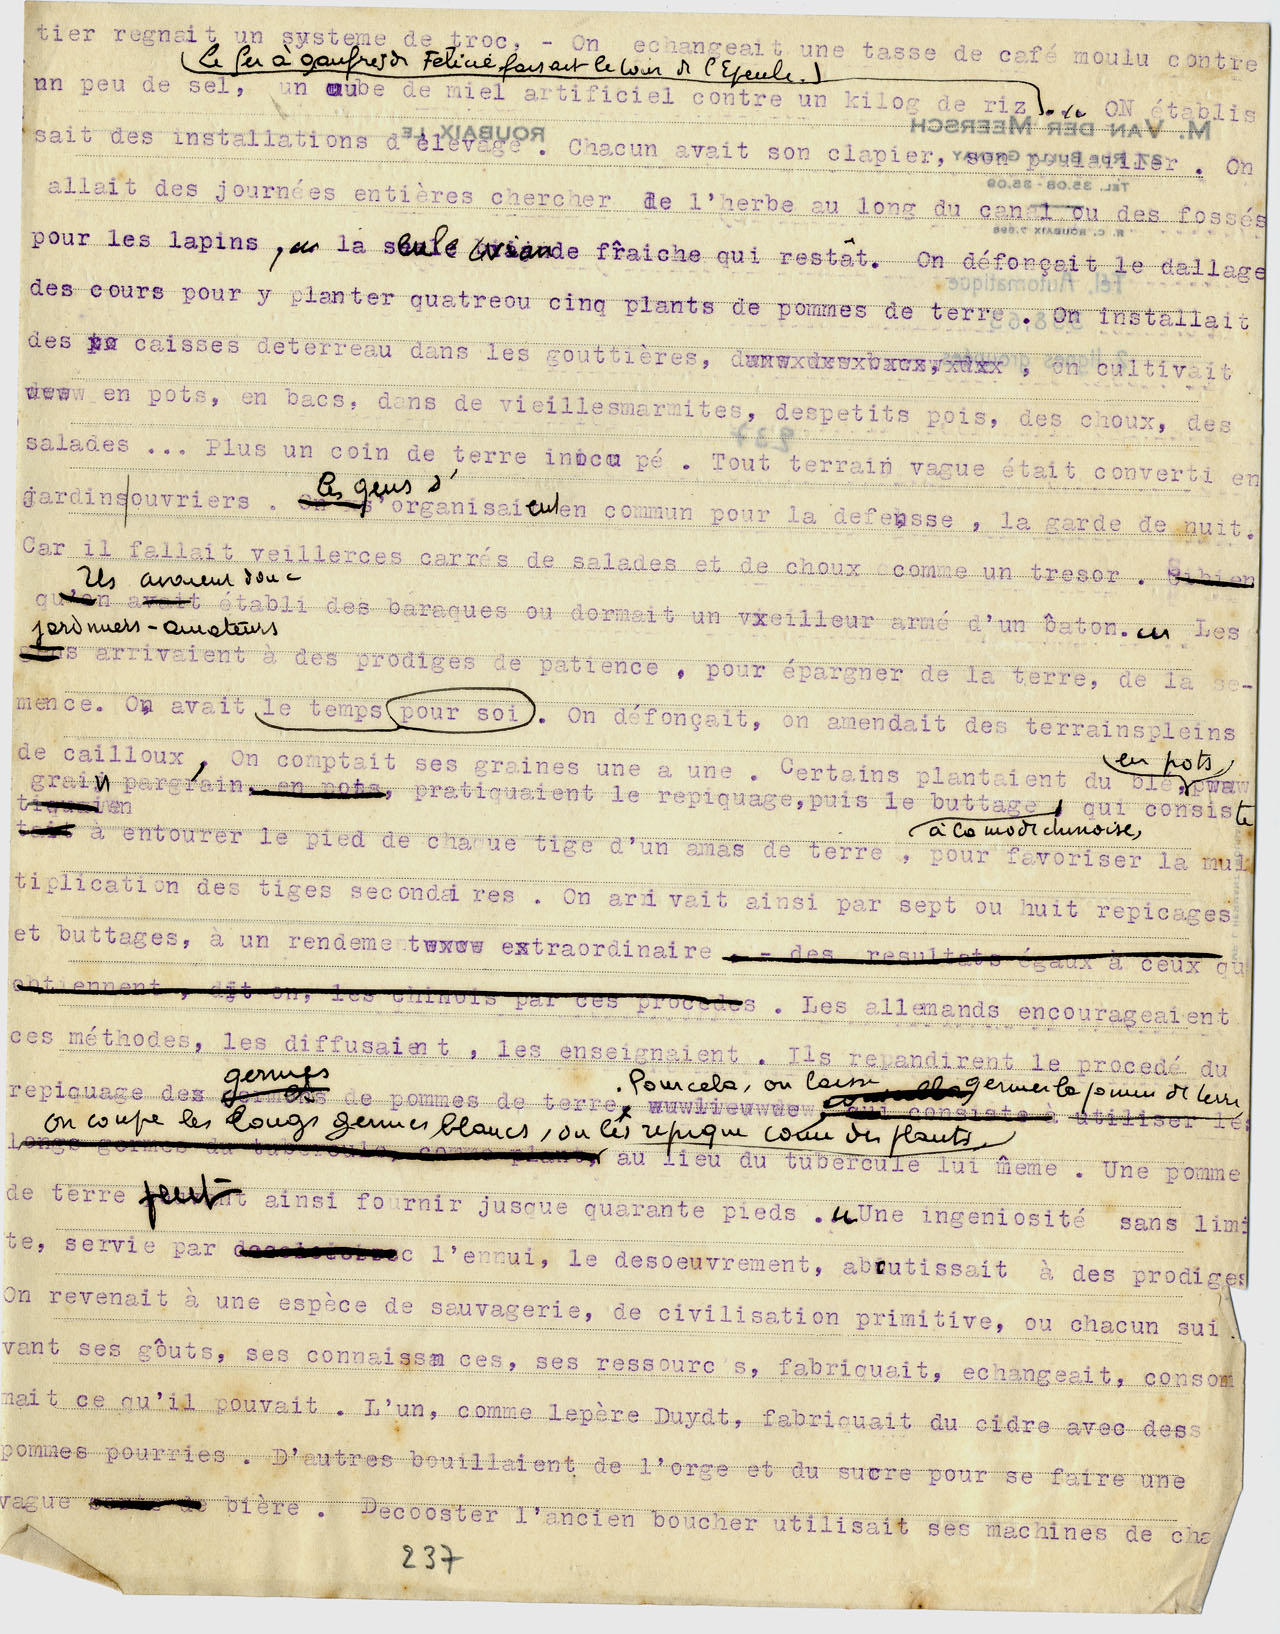 tier regnait un systeme de troc, - On echangeait une tasse de café moulu contre
Le fer à gaufres de Félicie faisait le tour de l'Epeule.
un peu de sel, un cube de miel artificiel contre un kilog de riz ... ON établis
M. VAN DER MEERSCH
ROUBAIX
sait des installations d'élevage . Chacun avait son clapier, son poulailler . On
TÉL. 35.08 - 35.09
allait des journées entières chercher de l'herbe au long du canal ou des fossés
R. C. ROUBAIX 7.598
pour les lapins , la seule viande fraîche qui restât. On défonçait le dallage
Tél. Automatique
des cours pour y planter quatreou cinq plants de pommes de terre . On installait
des caisses deterreau dans les gouttières, , on cultivait
en pots, en bacs, dans de vieillesmarmites, despetits pois, des choux, des
237
salades ... Plus un coin de terre inocu pé . Tout terrain vague était converti en
les gens s'
jardins ouvriers . On s'organisaient en commun pour la defensse , la garde de nuit.
Car il fallait veillerces carrés de salades et de choux comme un tresor . Sibien
Ils avaient donc
qu'on avait établi des baraques ou dormait un vieilleur armé d'un bâton. Les
jardiniers-amateurs
arrivaient à des prodiges de patience , pour épargner de la terre, de la se-
mence. On avait le temps pour soi . On défonçait, on amendait des terrainspleins
de cailloux , On comptait ses graines une a une . Certains plantaient du blé,
en pots,
grain pargrain, en pots, pratiquaient le repiquage,puis le buttage, qui consiste
à la mode chinoise,
à entourer le pied de chaque tige d'un amas de terre , pour favoriser la mul
tiplication des tiges secondai res . On arri vait ainsi par sept ou huit repicages
et buttages, à un rendement extraordinaire . - des resultats égaux à ceux qu
obtiennent , dit on, les chinois par ces procedes . Les allemands encourageaient
ces méthodes, les diffusaient , les enseignaient . Ils repandirent le procedé du
germes
. Pour cela, on laisse germer la pomme de terre
repiquage des germes de pommes de terre, qui consiste à utiliser les
on coupe les longs germes blancs, on les repique comme des plants,
longs germes du tubercule, comme plant, au lieu du tubercule lui même . Une pomme
de terre peut ainsi fournir jusque quarante pieds . Une ingeniosité sans limi
te, servie par l'ennui, le desoeuvrement, aboutissait à des prodiges
On revenait à une espèce de sauvagerie, de civilisation primitive, ou chacun sui
vant ses gôuts, ses connaissan ces, ses ressourc s, fabriquait, echangeait, consom
mait ce qu'il pouvait . L'un, comme lepère Duydt, fabriquait du cidre avec dess
pommes pourries . D'autres bouillaient de l'orge et du sucre pour se faire une
vague sorte de bière . Decooster l'ancien boucher utilisait ses machines de cha
237